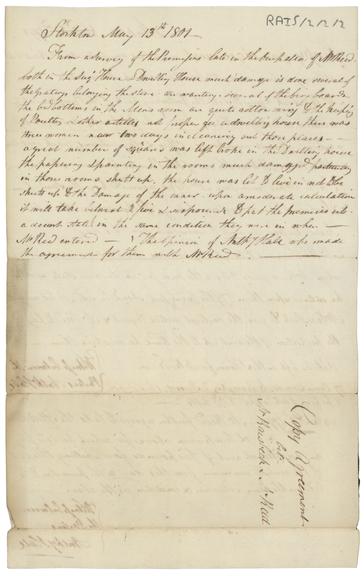 RAIS/2/2/2
Stockton May 13th 1801
From a Survey of the Premises late in the Occupation of Mr Reed
both in the House & Dwelling House much damage is done several of
the gratings belonging the Stove are wanting several of the
the bed bottoms in the Mens room are quite rotten & the keeping
of Poultry & other articles not proper for a dwelling house there was
three women near two days in cleaning out those places
a great number of squares was left broke in the Dwelling house
the papering & painting in the rooms much damaged particularly
in those rooms shut up. the house was let to live in not to be
shut up & the Damage of the same upon a moderate calculation
it will take betwixt & five & six pounds to put the premises into
a decent state in the same condition they were in when
Mr Reed entered — The Opinion of Anthy Hall who made
the agreement for them with Mr Reed
Copy Agreement
bet
Mr & Mr Reed